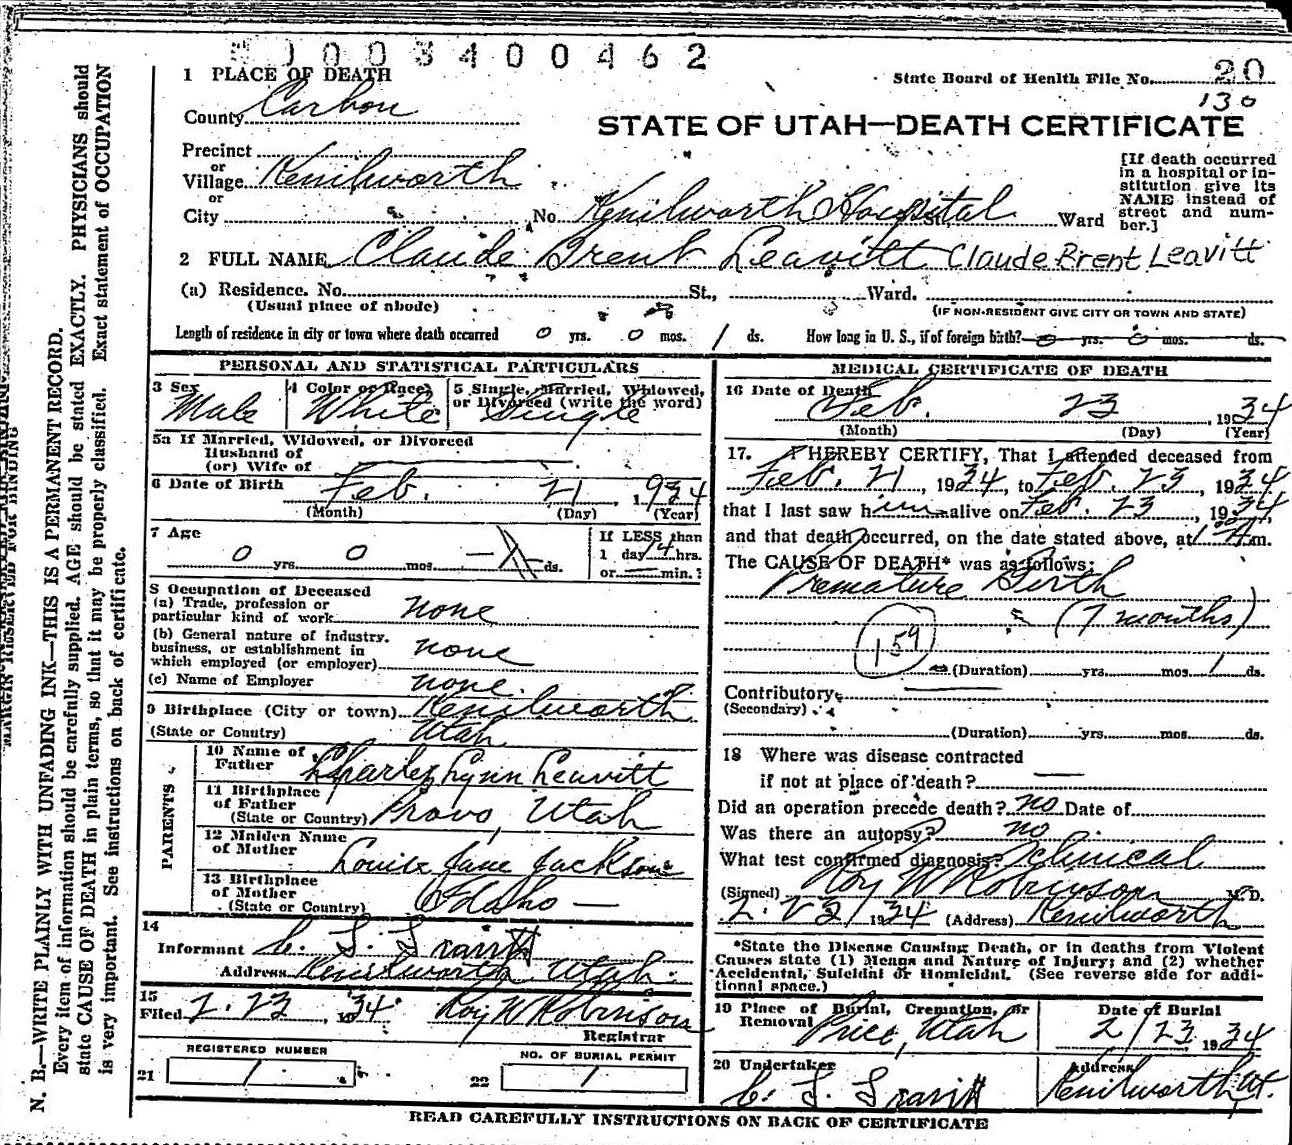 0 0 3 4 0 0 4 6 2
State Board of Health File No. 20
130
1 PLACE OF DEATH
County Carbon
STATE OF UTAH—DEATH CERTIFICATE
Precinct
or
Village Kenilworth
or
City No. Kenilworth Hospital St., Ward
[If death occurred
in a hospital or in-
stitution give its
NAME instead of
street and num-
ber.]
2 FULL NAME Claude Brent Leavitt Claude Brent Leavitt
(a) Residence. No. St., Ward.
(Usual place of abode) (IF NON-RESIDENT GIVE CITY OR TOWN AND STATE)
Length of residence in city or town where death occurred 0 yrs. 0 mos. 1 ds. How long in U. S., if of foreign birth? 0 yrs. 0 mos. ds.
PERSONAL AND STATISTICAL PARTICULARS
3 Sex
Male
4 Color or Race
White
5 Single, Married, Widowed,
or Divorced (write the word)
Single
5a If Married, Widowed, or Divorced
Husband of
(or) Wife of
6 Date of Birth Feb. 21 1934
(Month) (Day) (Year)
7 Age
0 yrs. 0 mos. 1 ds.
If LESS than
1 day 14 hrs.
or min.?
8 Occupation of Deceased
(a) Trade, profession or
particular kind of work none
(b) General nature of industry,
business, or establishment in
which employed (or employer) none
(c) Name of Employer none.
9 Birthplace (City or town) Kenilworth
(State or Country) Utah
PARENTS
10 Name of
Father Charles Lynn Leavitt
11 Birthplace
of Father
(State or Country) Provo, Utah
12 Maiden Name
of Mother Louise Jane Jackson
13 Birthplace
of Mother
(State or Country) Idaho —
14
Informant C. L. Leavitt
Address Kenilworth Utah.
15
Filed 2-23, 1934. Roy W Robinson
Registrar
REGISTERED NUMBER
21 1
NO. OF BURIAL PERMIT
22 1
MEDICAL CERTIFICATE OF DEATH
16 Date of Death
Feb. 23, 1934
(Month) (Day) (Year)
17. I HEREBY CERTIFY, That I attended deceased from
Feb. 21, 1934, to Feb. 23, 1934
that I last saw him alive on Feb. 23, 1934,
and that death occurred, on the date stated above, at A m.
The CAUSE OF DEATH* was as follows:
Premature Birth
(7 months)
159
(Duration) yrs. mos. 1 ds.
Contributory
(Secondary)
(Duration) yrs. mos. ds.
18 Where was disease contracted
if not at place of death?
Did an operation precede death? no Date of
Was there an autopsy? no.
What test confirmed diagnosis? Clinical
(Signed) Roy W Robinson M. D.
2-23, 1934 (Address) Kenilworth
*State the Disease Causing Death, or in deaths from Violent
Causes state (1) Means and Nature of Injury; and (2) whether
Accidental, Suicidal or Homicidal. (See reverse side for addi-
tional space.)
19 Place of Burial, Cremation, or
Removal Price, Utah
Date of Burial
2/23, 1934
20 Undertaker
C. L. Leavitt
Address
Kenilworth, Ut.
READ CAREFULLY INSTRUCTIONS ON BACK OF CERTIFICATE
MARGIN RESERVED FOR BINDING
N. B.—WRITE PLAINLY WITH UNFADING INK—THIS IS A PERMANENT RECORD.
Every item of information should be carefully supplied. AGE should be stated EXACTLY. PHYSICIANS should
state CAUSE OF DEATH in plain terms, so that it may be properly classified. Exact statement of OCCUPATION
is very important. See instructions on back of certificate.